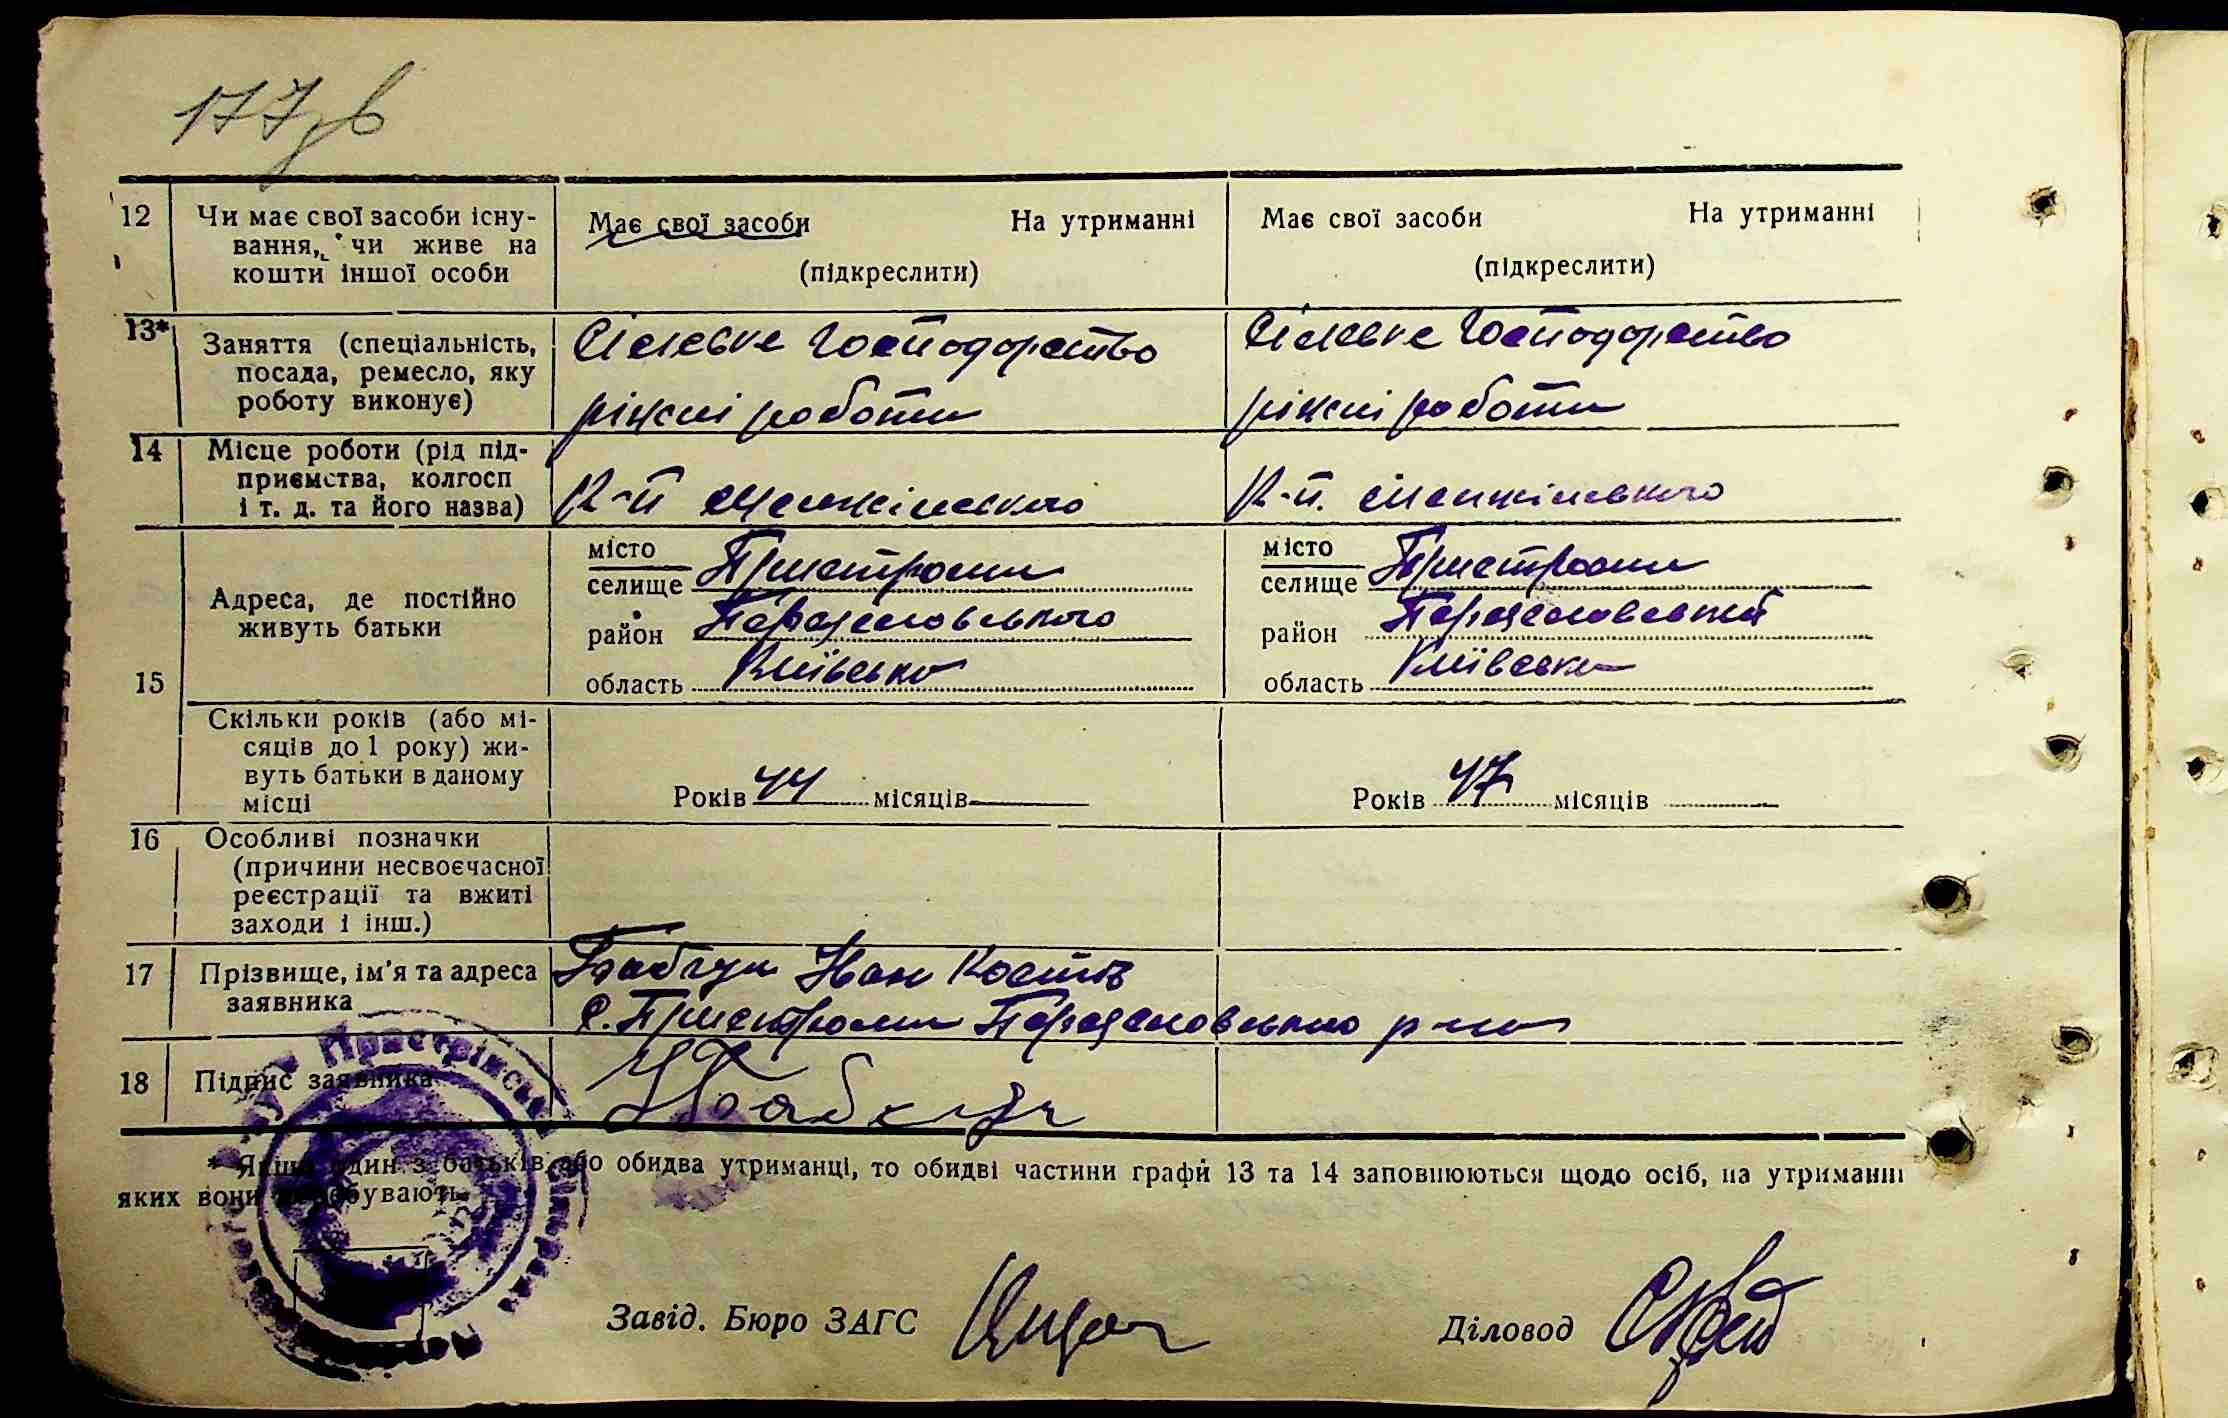 177зв
12 Чи має свої засоби існу-
вання, чи живе на
кошти іншої особи
Має свої засоби На утриманні
(підкреслити)
Має свої засоби На утриманні
(підкреслити)
13* Заняття (спеціальність,
посада, ремесло, яку
роботу виконує)
Сільське Господарство
ріжні роботи
Сільське Господарство
ріжні роботи
14 Місце роботи (рід під-
приємства, колгосп
і т. д. та його назва)
К-п
К-п.
15 Адреса, де постійно
живуть батьки
місто
селище Пристроми
район Переяславського
область Київська
місто
селище Пристроми
район Переяславський
область Київська
Скільки років (або мі-
сяців до 1 року) жи-
вуть батьки в даному
місці
Років 44 місяців
Років 47 місяців
16 Особливі позначки
(причини несвоєчасної
реєстрації та вжиті
заходи і інш.)
17 Прізвище, ім'я та адреса
заявника
Іван Костів
с. Пристроми Переяславського р-на
18 Підпис заявника
* Якщо один з батьків або обидва утриманці, то обидві частини графи 13 та 14 заповнюються щодо осіб, на утриманні
яких вони перебувають.
Завід. Бюро ЗАГС
Діловод